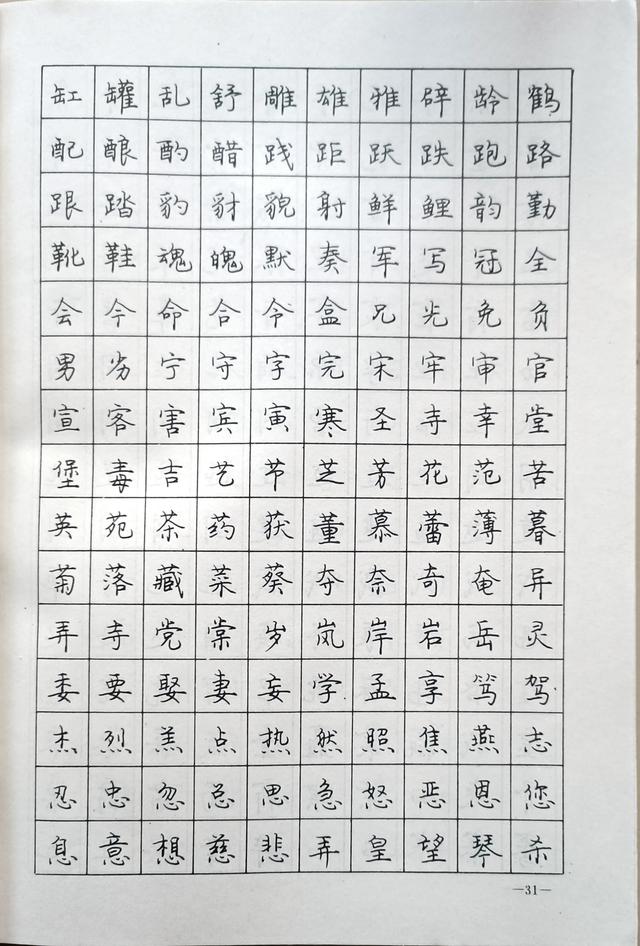 缸罐乱舒雕雄雅辟龄鹤
配酿酌醋践距跃跌跑路
跟踏豹豺貌射鲜鲤韵勤
靴鞋魂魄默奏军写冠全
会今命合令盒兄光免负
男劣宁守字完宋牢审官
宣客害宾寅寒圣寺幸堂
堡毒吉艺节芝芳花范苦
英苑茶药获董慕蕾薄暮
菊落藏菜葵夺奈奇奄异
弄寺党棠岁岚岸岩岳灵
委要娶妻妄学孟享笃驾
杰烈羔点热然照焦燕志
忍忠忽总思急怒恶恩您
息意想慈悲弄皇望琴杀
—31—